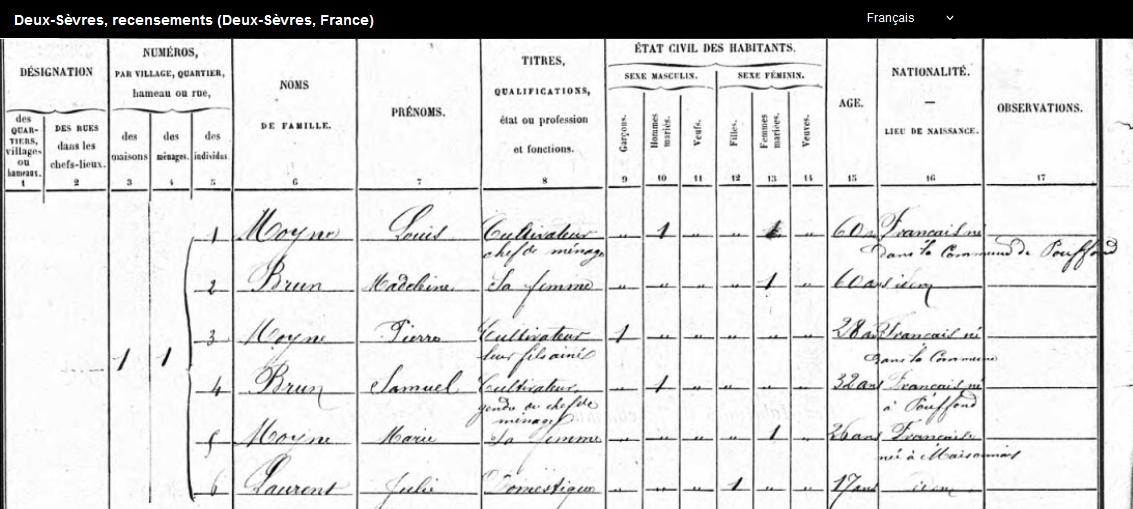 Deux-Sèvres, recensements (Deux-Sèvres, France) Français
DÉSIGNATION
des QUARTIERS, villages ou hameaux. 1
DES RUES dans les chefs-lieux. 2
NUMÉROS, PAR VILLAGE, QUARTIER, hameau ou rue,
des maisons 3
des ménages. 4
des individus 5
NOMS DE FAMILLE. 6
PRÉNOMS. 7
TITRES, QUALIFICATIONS, état ou profession et fonctions. 8
ÉTAT CIVIL DES HABITANTS.
SEXE MASCULIN.
Garçons. 9
Hommes mariés. 10
Veufs. 11
SEXE FÉMININ.
Filles. 12
Femmes mariées. 13
Veuves. 14
AGE. 15
NATIONALITÉ. — LIEU DE NAISSANCE. 16
OBSERVATIONS. 17
1 Moyne Louis Cultivateur „ 1 „ „ „ 60 Francais né
chef de ménage dans la Commune de Pouffond
2 Brun Madeleine Sa femme „ „ „ „ 1 „ 60 ans idem
1 1 3 Moyne Pierre Cultivateur 1 „ „ „ „ „ 28 ans Francais né
leur fils ainé dans la Commune
4 Brun Samuel Cultivateur „ 1 „ „ „ „ 32 ans Francais né
gendre du chef de ménage à Pouffond
5 Moyne Marie Sa femme „ „ „ „ 1 „ 26 ans Française
né à Maisonnais
6 Laurent Julie Domestique „ „ „ 1 „ „ 17 ans idem